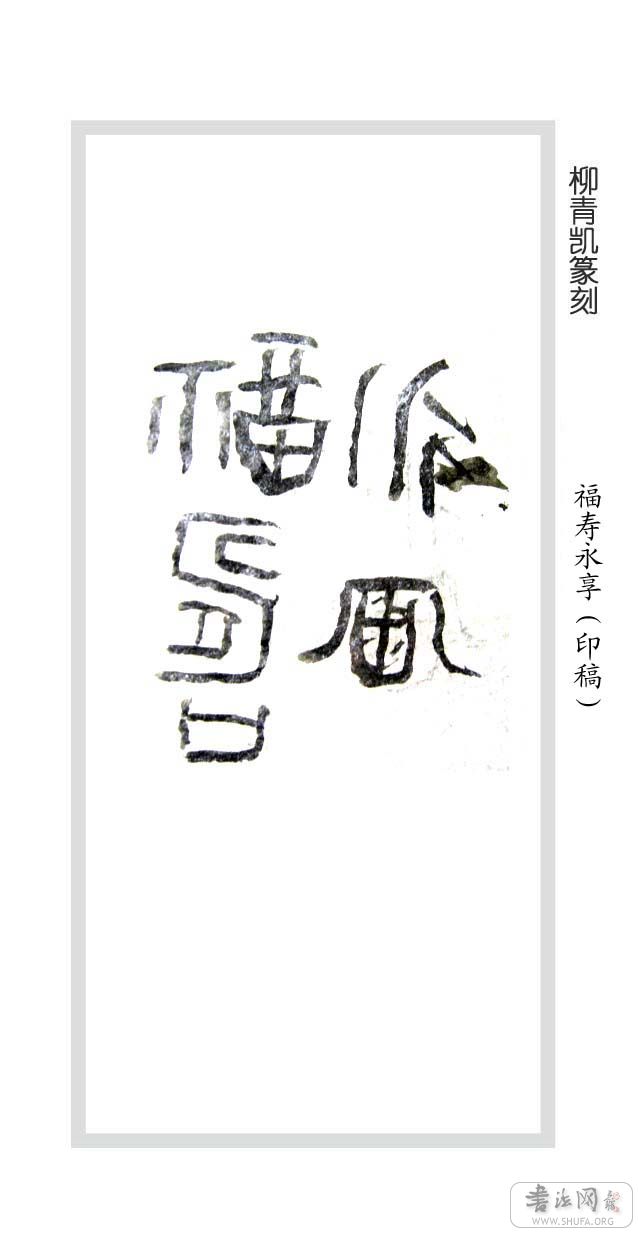 柳青凯篆刻
福寿永享（印稿）
福寿
书法网
WWW.SHUFA.ORG